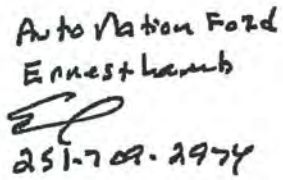 AutoNation Ford
Ernest Lamb
251-709-2974